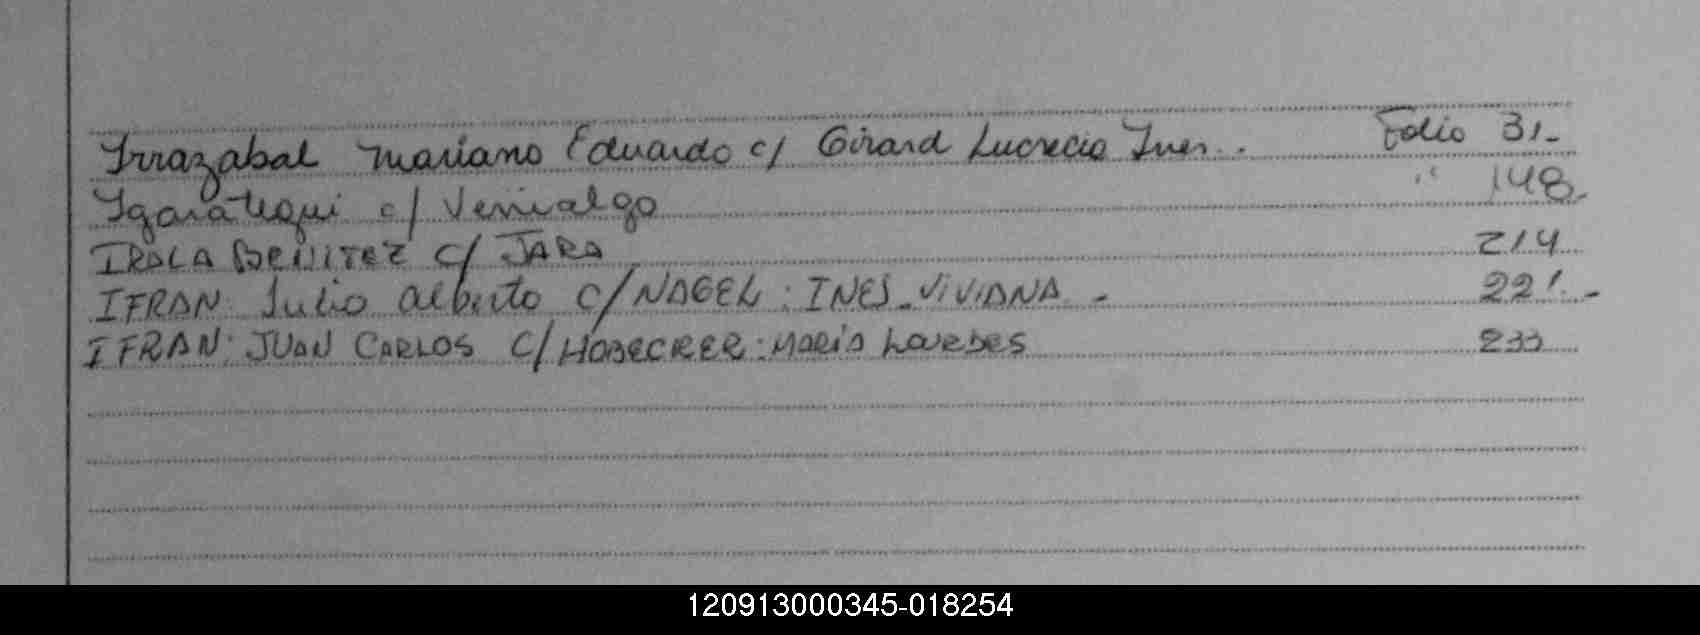 Irrazabal Mariano Eduardo c/ Girard Lucrecia Ines. Folio 31-
Igaratequi c/ Venialgo " 148-
IROLA BENITEZ C/ JARA 214
IFRAN: Julio Alberto C/ NAGEL: INES VIVIANA - 221-
IFRAN: JUAN CARLOS C/ HOBECRER: MARIA LOURDES 233
120913000345-018254